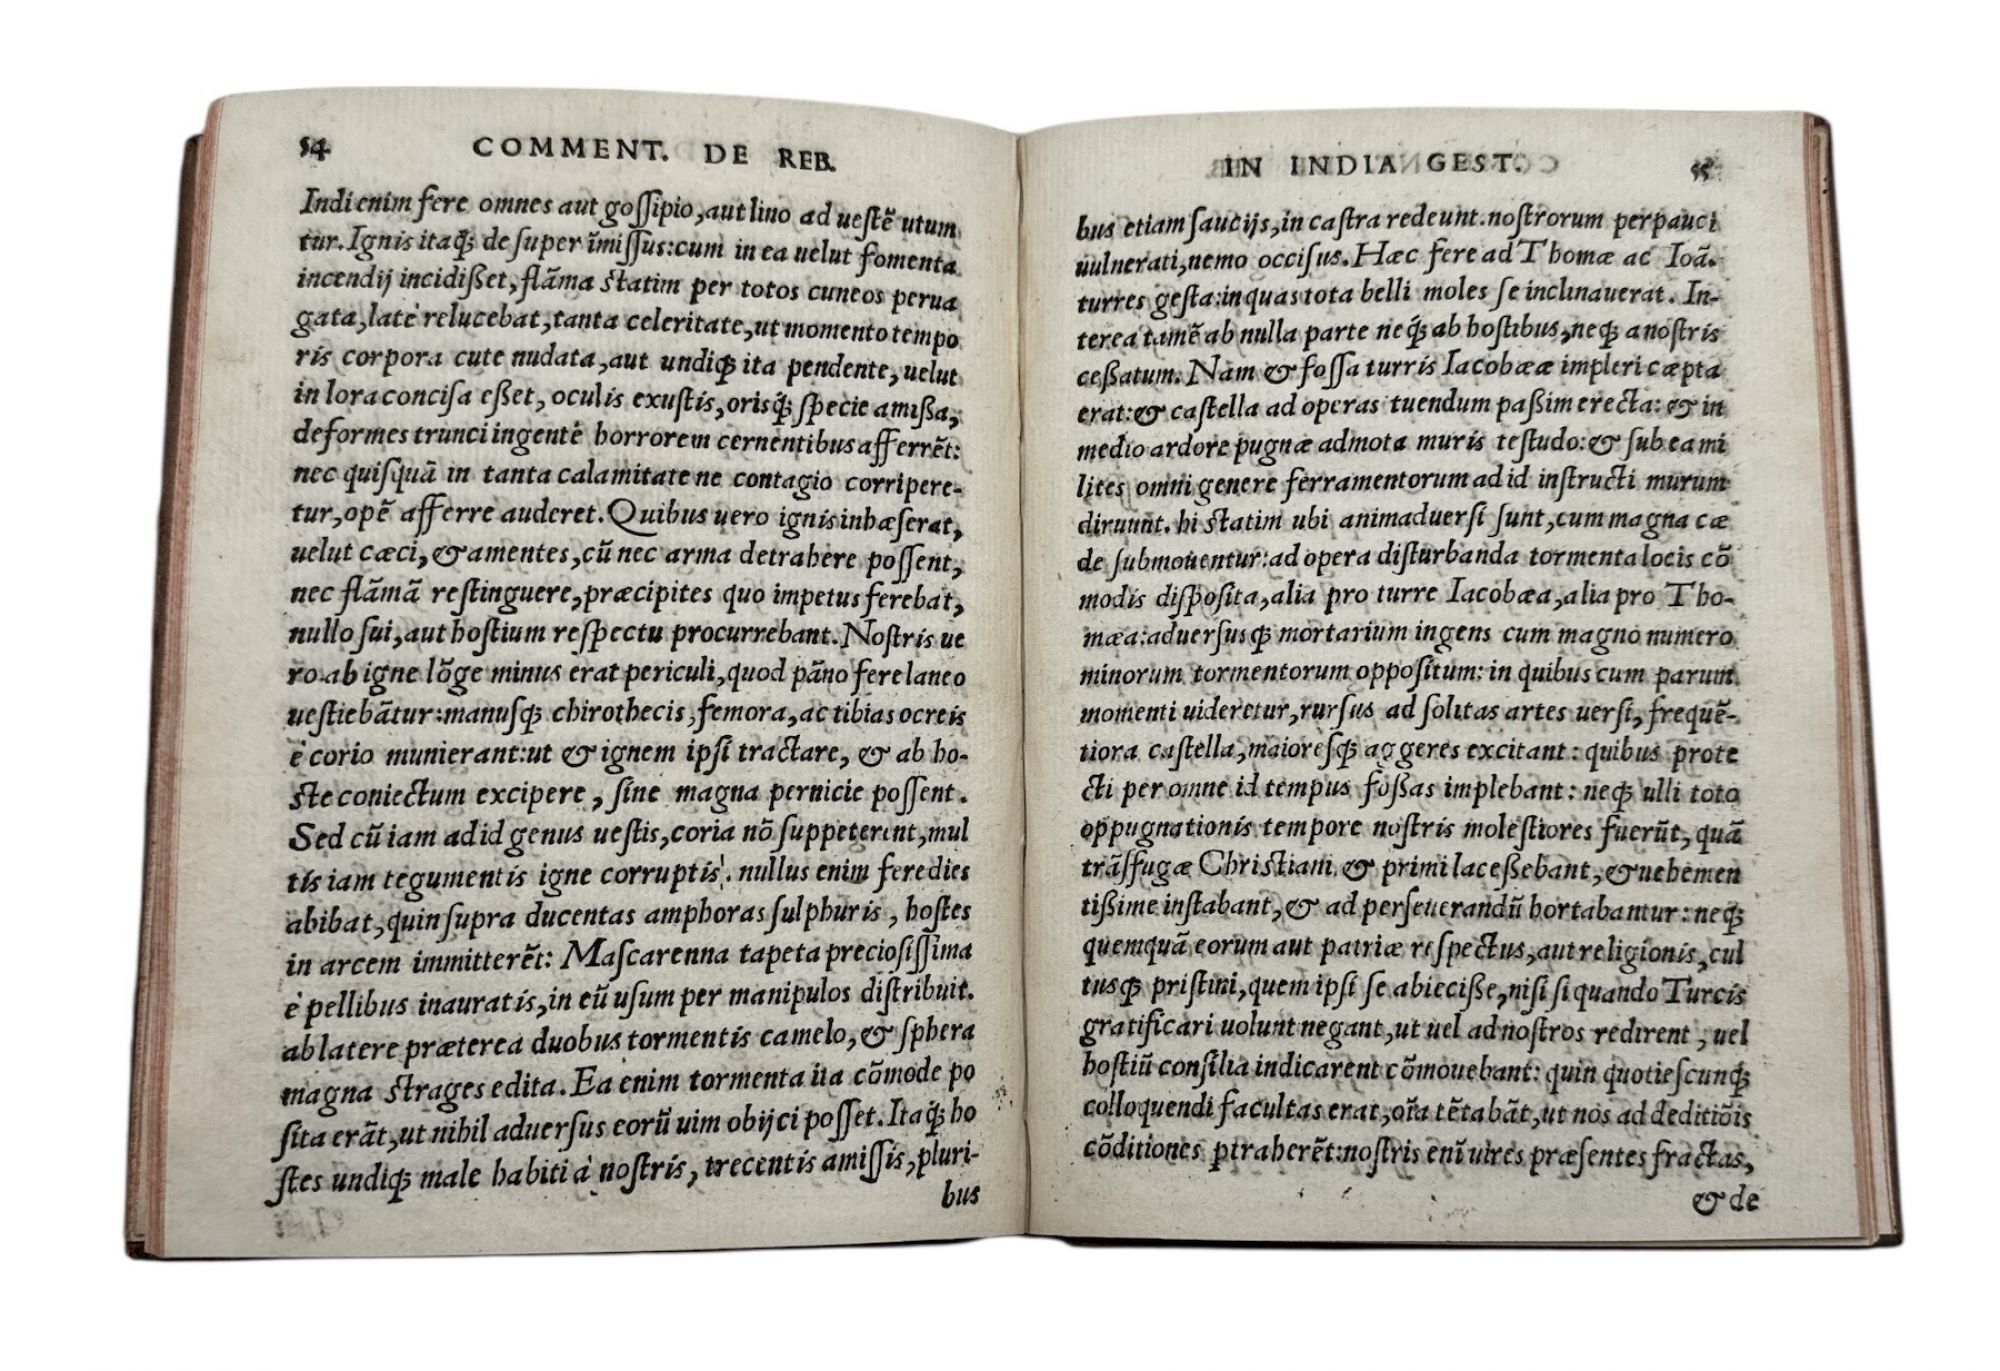 54 COMMENT. DE REB.
Indi enim fere omnes aut goſſipio, aut lino ad ueſtẽ utum
tur. Ignis itaq́; de ſuper ĩmiſſus: cum in ea uelut fomenta
incendij incidißet, flãma ſtatim per totos cuneos perua
gata, latè relucebat, tanta celeritate, ut momento tempo
ris corpora cute nudata, aut undiq; ita pendente, uelut
in lora conciſa eßet, oculis exuſtis, orisq́; ſpecie amißa,
deformes trunci ingentẽ horrorem cernentibus afferrẽt:
nec quiſquã in tanta calamitate ne contagio corripere-
tur, opẽ afferre auderet. Quibus uero ignis inhæſerat,
uelut cæci, & amentes, cũ nec arma detrahere poſſent,
nec flãmã reſtinguere, præcipites quo impetus ferebat,
nullo ſui, aut hoſtium reſpectu procurrebant. Noſtris ue
ro ab igne lõge minus erat periculi, quod pãno fere laneo
ueſtiebãtur: manuſq; chirothecis, femora, ac tibias ocreis
è corio munierant: ut & ignem ipſi tractare, & ab ho-
ſte coniectum excipere, ſine magna pernicie poſſent.
Sed cũ iam ad id genus ueſtis, coria nõ ſuppeterent, mul
tis iam tegumentis igne corruptis: nullus enim fere dies
abibat, quin ſupra ducentas amphoras ſulphuris, hoſtes
in arcem immitterẽt: Maſcarenna tapeta precioſiſſima
è pellibus inauratis, in eũ uſum per manipulos diſtribuit.
ab latere præterea duobus tormentis camelo, & ſphera
magna ſtrages edita. Ea enim tormenta ita cõmode po
ſita erãt, ut nihil aduerſus eorũ uim obijci poſſet. Itaq́; ho
ſtes undiq; male habiti à noſtris, trecentis amiſſis, pluri-
bus
IN INDIA GEST. 55
bus etiam ſaucijs, in caſtra redeunt. noſtrorum perpauci
uulnerati, nemo occiſus. Hæc fere ad Thomæ ac Ioã.
turres geſta: in quas tota belli moles ſe inclinauerat. In-
terea tamẽ ab nulla parte neq́; ab hoſtibus, neq; a noſtris
ceßatum. Nam & foſſa turris Iacobææ impleri cæpta
erat: & caſtella ad operas tuendum paßim erecta: & in
medio ardore pugnæ admota muris teſtudo: & ſub ea mi
lites omni genere ferramentorum ad id inſtructi murum
diruunt. hi ſtatim ubi animaduerſi ſunt, cum magna cæ
de ſubmouentur: ad opera diſturbanda tormenta locis cõ
modis diſpoſita, alia pro turre Iacobæa, alia pro Tho-
mæa: aduerſusq; mortarium ingens cum magno numero
minorum tormentorum oppoſitum: in quibus cum parum
momenti uideretur, rurſus ad ſolitas artes uerſi, frequẽ-
tiora caſtella, maioreſq; aggeres excitant: quibus prote
cti per omne id tempus foßas implebant: neq; ulli toto
oppugnationis tempore noſtris moleſtiores fuerũt, quã
trãſfugæ Chriſtiani, & primi laceßebant, & uehemen
tißime inſtabant, & ad perſeuerandũ hortabantur: neq;
quemquã eorum aut patriæ reſpectus, aut religionis, cul
tusq; priſtini, quem ipſi ſe abieciße, niſi ſi quando Turcis
gratificari uolunt negant, ut uel ad noſtros redirent, uel
hoſtiũ conſilia indicarent cõmouebant: quin quotieſcunq́;
colloquendi facultas erat, oĩa tẽtabãt, ut nos ad deditiõis
cõditiones ꝑtraherẽt: noſtris enĩ uires præſentes fractas,
& de